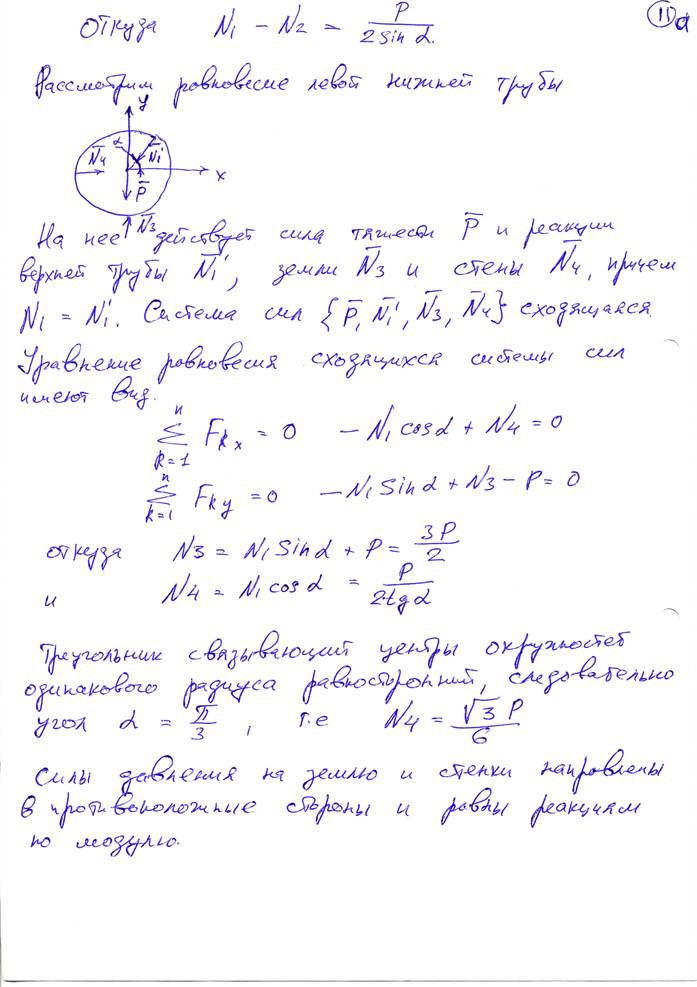 11d
откуда N1 - N2 = P / 2 sin α.
Рассмотрим равновесие левой нижней трубы
y
α N4 N1' x
P
N3
На нее действует сила тяжести P̄ и реакции
верхней трубы N̄1', земли N̄3 и стены N̄4, причем
N1 = N1'. Система сил {P̄, N̄1', N̄3, N̄4} сходящаяся.
Уравнение равновесия сходящихся системы сил
имеют вид.
n ∑ k=1 Fkx = 0 - N1 cos α + N4 = 0
n ∑ k=1 Fky = 0 - N1 sin α + N3 - P = 0
откуда N3 = N1 sin α + P = 3P / 2
и N4 = N1 cos α = P / 2tg α
Треугольник связывающий центры окружностей
одинакового радиуса равносторонний, следовательно
угол α = π / 3, т.е N4 = √3 P / 6
Силы давления на землю и стенки направлены
в противоположные стороны и равны реакциям
по модулю.